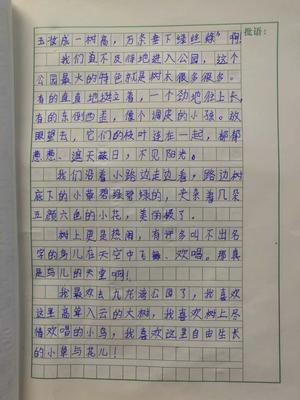 批语:
玉妆成一树高，万条垂下绿丝绦”啊
我们直不及待地进入公园，这个
公园最大的特色就是树木很多很多。
有的直直地挺立着，一个劲地往上长，
有的东倒西歪，像个调皮的小孩。放
眼望去，它们的枝叶连在一起，郁郁
葱葱、遮天蔽日，不见阳光。
我们沿着小路边走边看，路边树
底下的小草碧绿碧绿的，夹杂着几朵
五颜六色的小花，美丽极了。
树上更是热闹，有许多叫不出名
字的鸟儿在天空中飞舞、欢唱。那真
是鸟儿的天堂啊！
我最欢去九龙湾公园了，我喜欢
这里高耸入云的大树，我喜欢树上尽
情欢唱的小鸟，我喜欢这里自由生长
的小草与花儿！